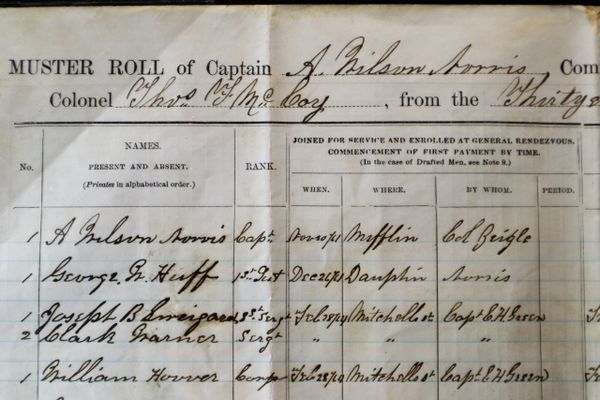 MUSTER ROLL of Captain A Wilson Norris Com
Colonel Thos F McCoy, from the Thirty
No. NAMES. PRESENT AND ABSENT. (Privates in alphabetical order.) RANK. JOINED FOR SERVICE AND ENROLLED AT GENERAL RENDEZVOUS.
COMMENCEMENT OF FIRST PAYMENT BY TIME.
(In the case of Drafted Men, see Note 8.)
WHEN. WHERE. BY WHOM. PERIOD.
1 A Wilson Norris Capt Mifflin Col Zeigle
1 George W Huff 1st Lieut Dauphin Norris
1 Joseph B 1st Sergt Mitchells St Capt E H Green
2 Clark Warner Sergt " " "
1 William Hoover Corp Mitchells St Capt E H Green